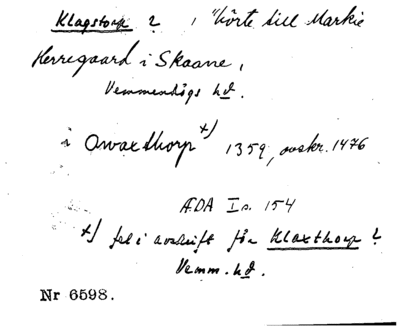 Klagstorp ? , "hörte till Markie
Herregaard i Skaane,
Vemmenhögs hd.
i Owaxthorp +) 1359, avskr. 1476
ÆDA I s. 154
+) fel i avskrift för Klaxthorp ?
Vemm. hd.
Nr 6598.